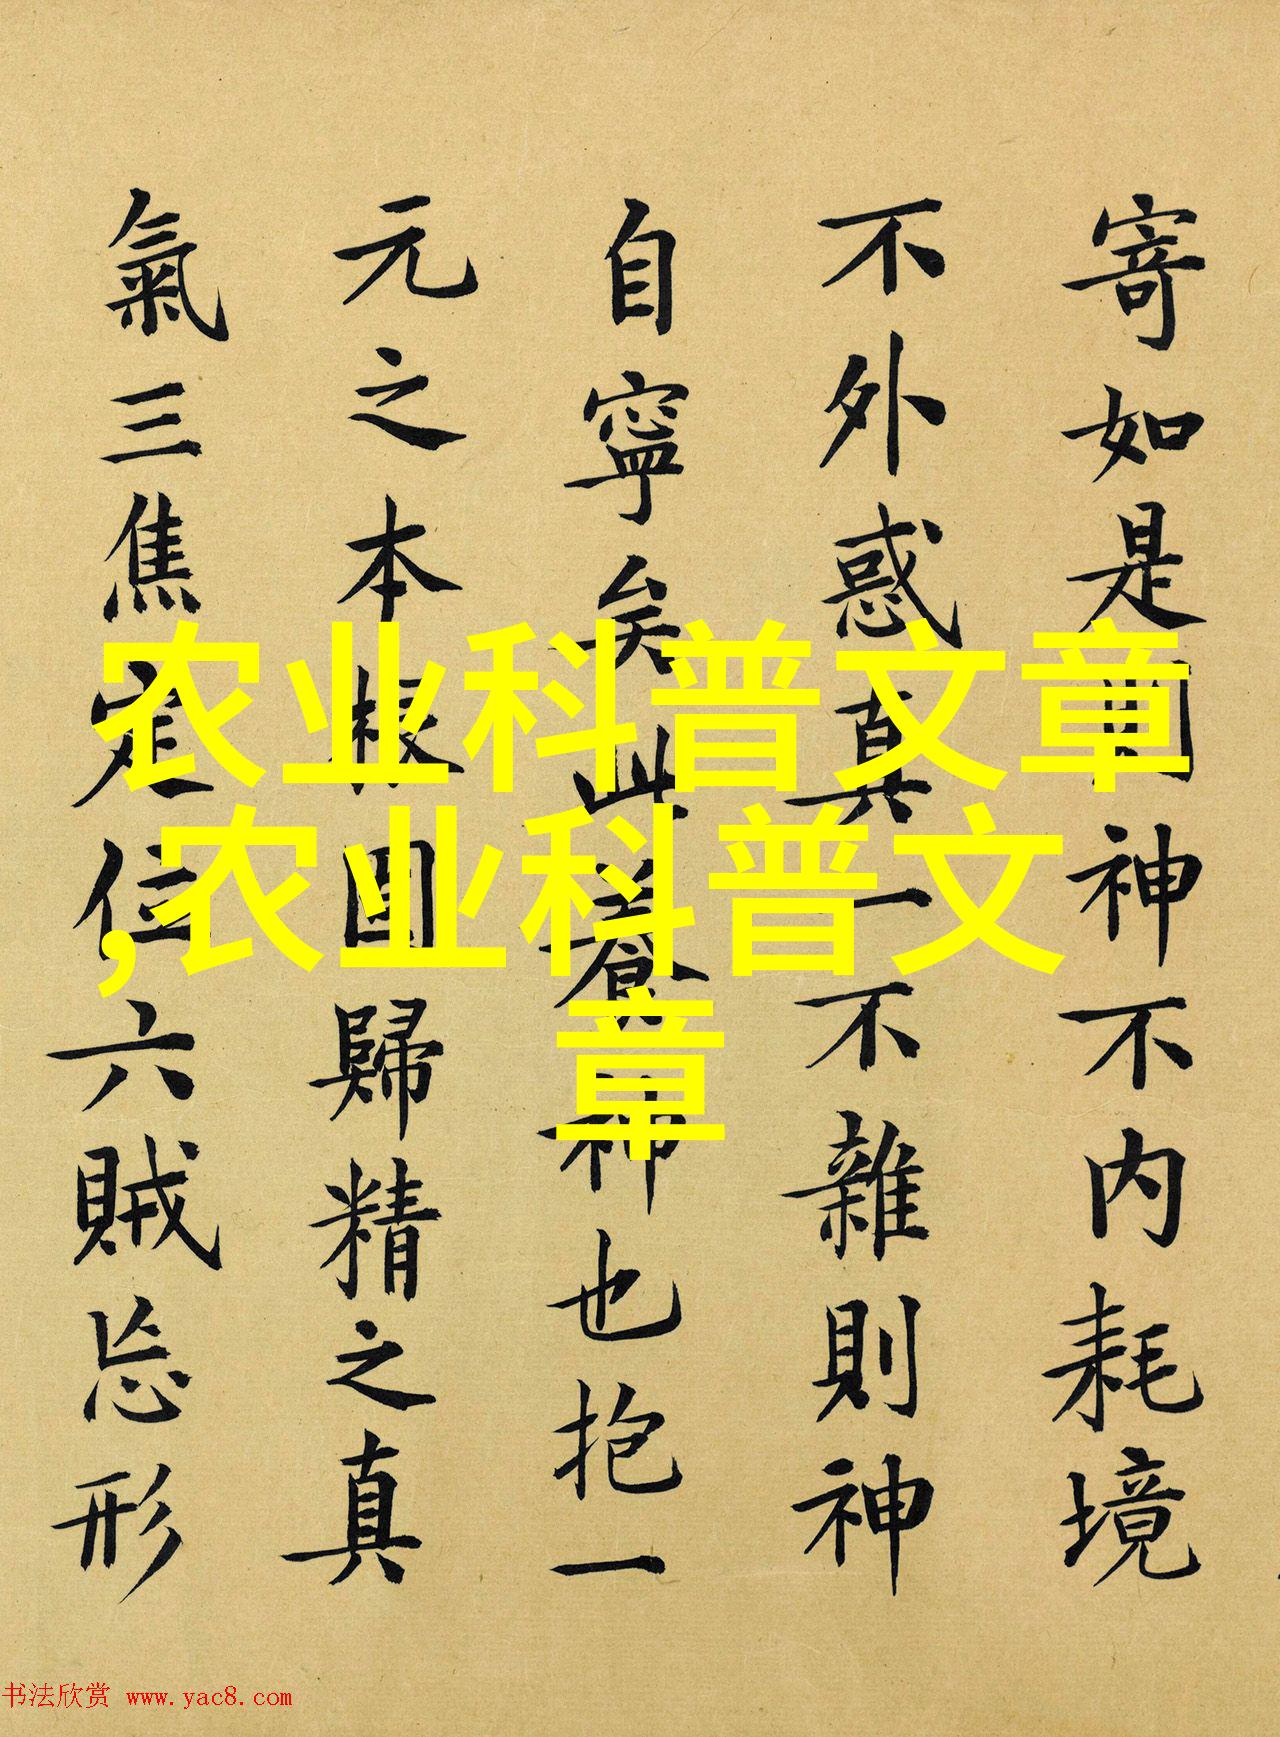 寄如是神不内耗境
不外惑真一不雜則神
自寧矣此養神也抱一
元之本根固歸精之真
氣三焦定位六賊忘形
农业科普文章
,农业科普文
章
书法欣赏 www.yac8.com